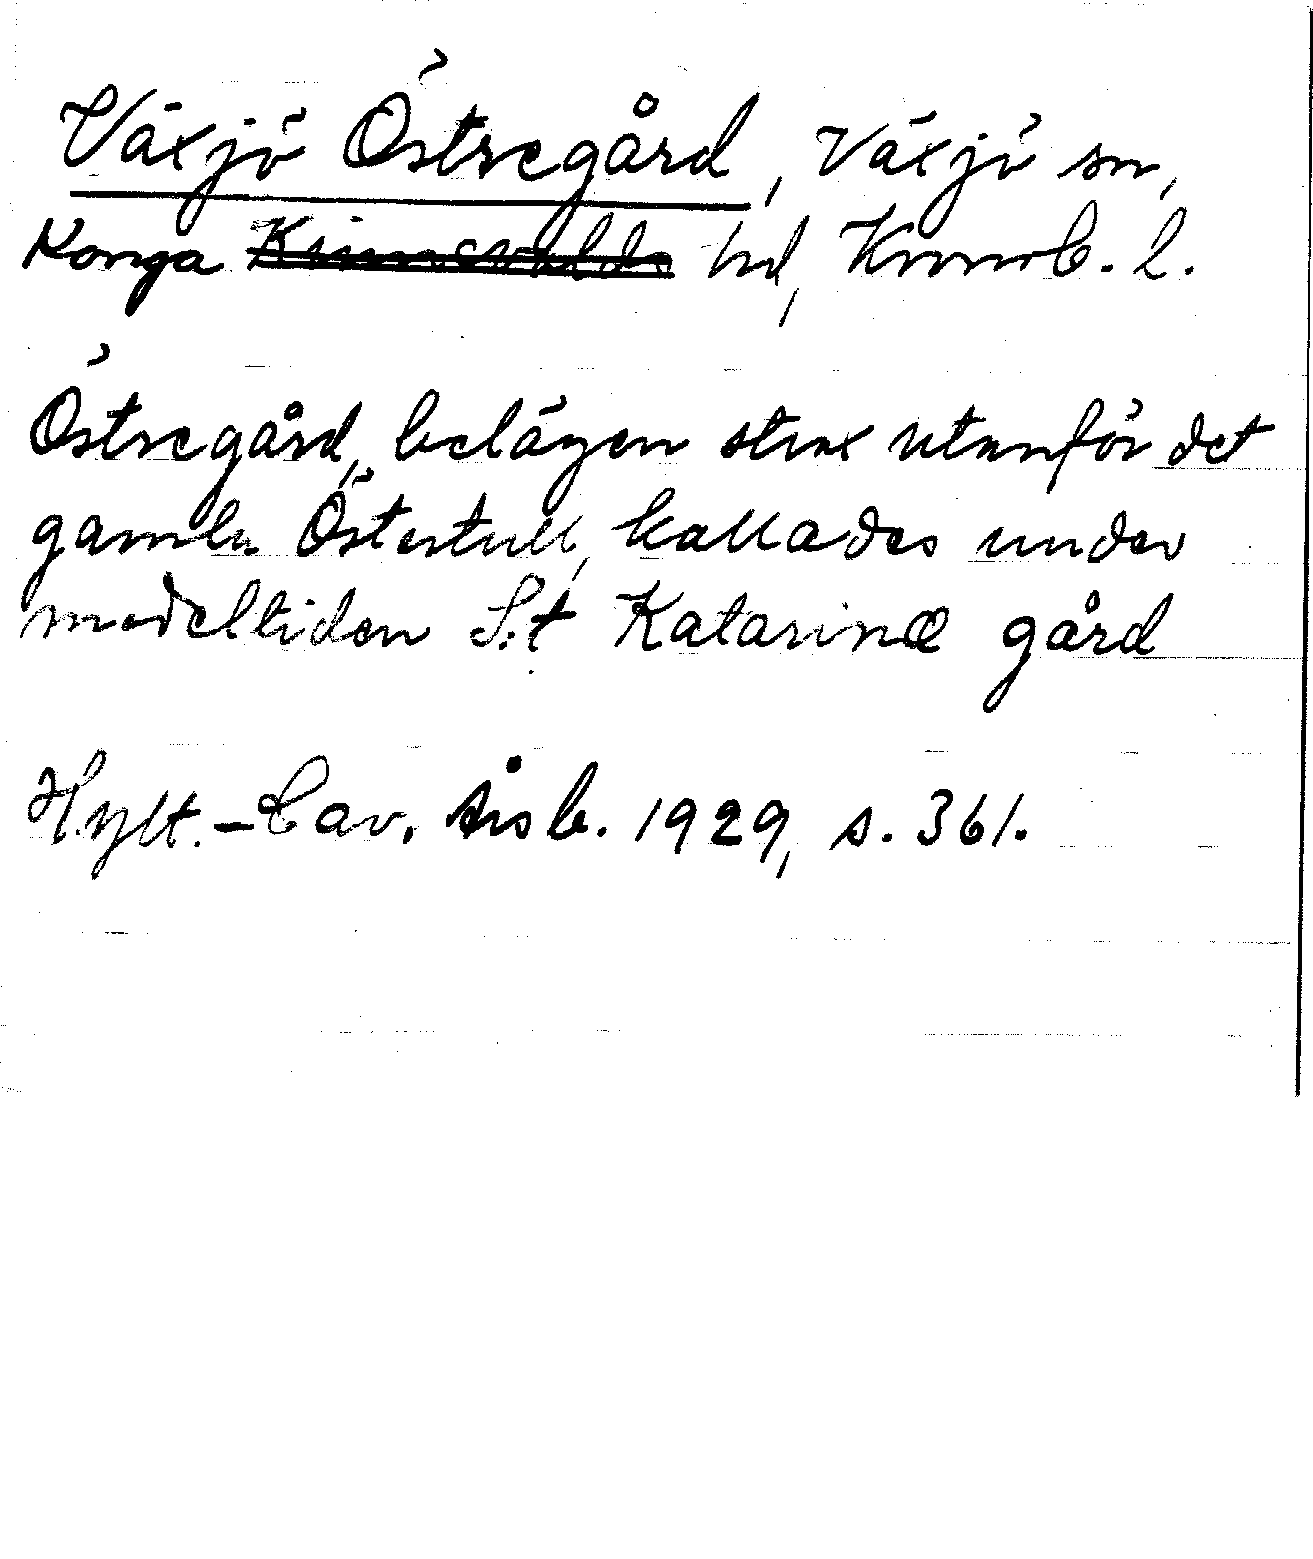 Växjö Östregård, Växjö sn,
Konga Kinnevalds hd, Kronob. l.
Östregård, belägen strax utanför det
gamla Östertull, kallades under
medeltiden S:t Katarinæ gård
Hylt.-Cav. årsb. 1929, s. 361.